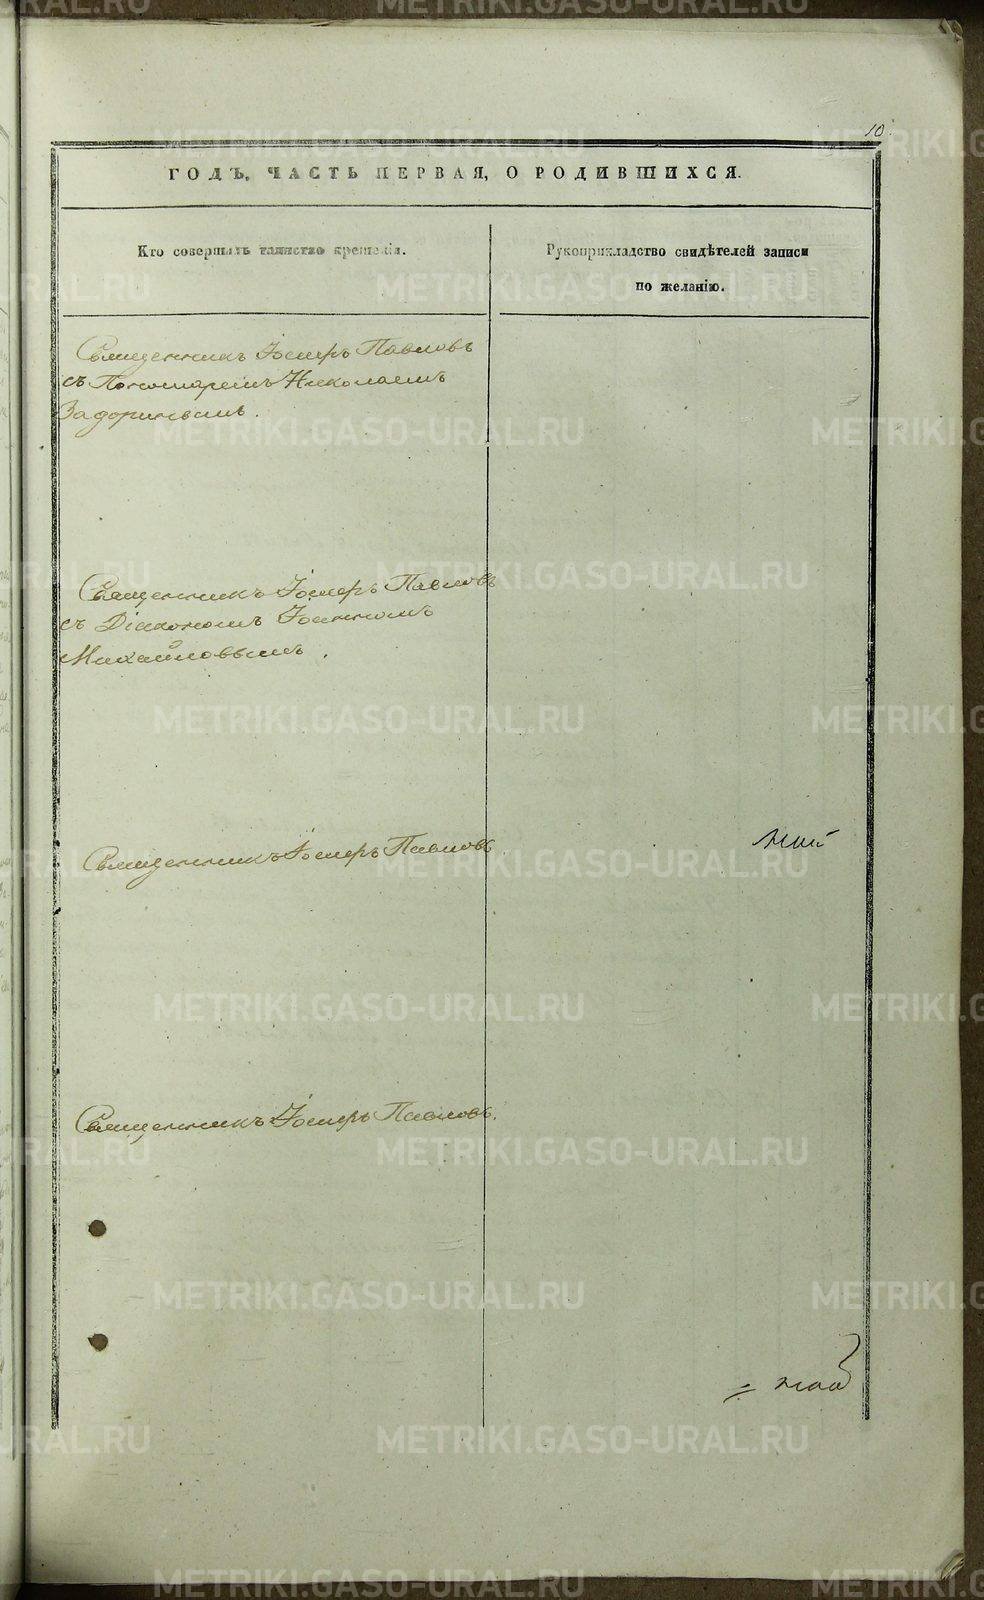 10.
ГОДЪ, ЧАСТЬ ПЕРВАЯ, О РОДИВШИХСЯ.
Кто совершалъ таинство крещенія.
Рукоприкладство свидѣтелей записи
по желанію.
Священникъ Іосифъ Павловъ
съ Пономаремъ Николаемъ
Задоринымъ.
Священникъ Іосифъ Павловъ
съ Діакономъ Іоанномъ
Михайловымъ.
Священникъ Іосифъ Павловъ
Священникъ Іосифъ Павловъ.
METRIKI.GASO-URAL.RU